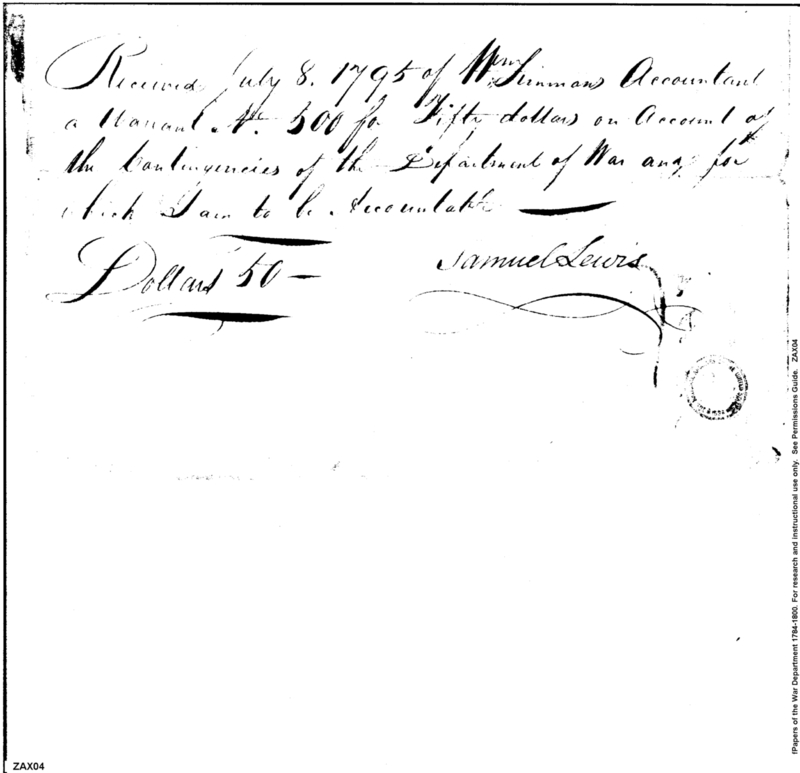 Received July 8. 1795 of Wm Simmons Accountant
a Warrant No. 500 for Fifty dollars on Account of
the Contingencies of the Department of War and for
which I am to be Accountable
Dollars 50 —
Samuel Lewis
ZAX04
fPapers of the War Department 1784-1800. For research and instructional use only. See Permissions Guide. ZAX04